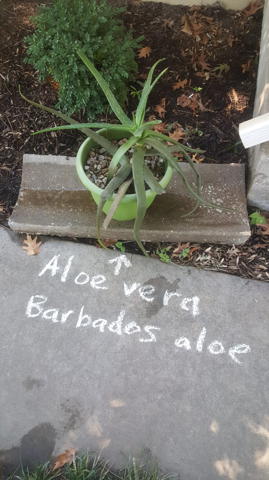 Aloe vera
Barbados aloe